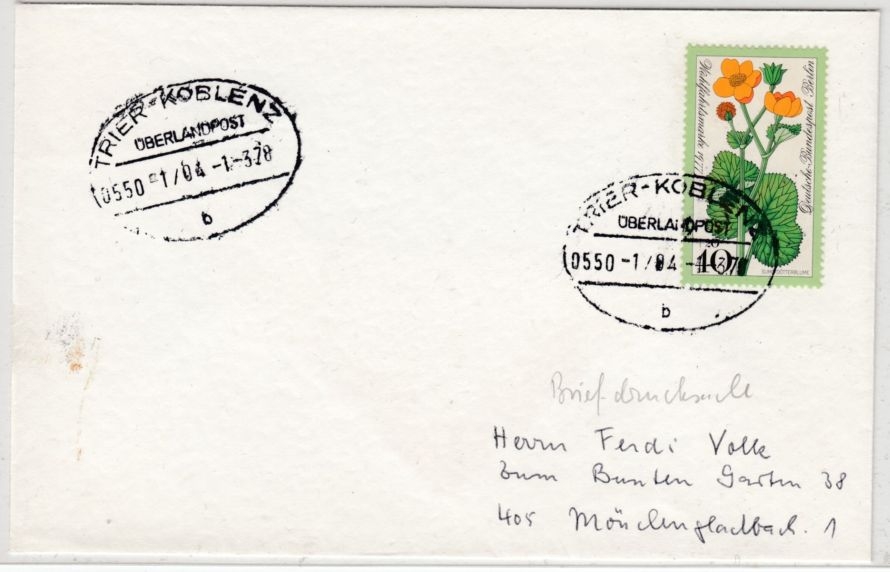 TRIER-KOBLENZ
ÜBERLANDPOST
0550 -1/04 -1.-3.78
b
Deutsche Bundespost Berlin
40
SUMPFDOTTERBLUME
TRIER-KOBLENZ
ÜBERLANDPOST
0550 -1/04
b
Briefdrucksache
Herrn Ferdi Volk
Zum Bunten Garten 38
405 Mönchengladbach. 1